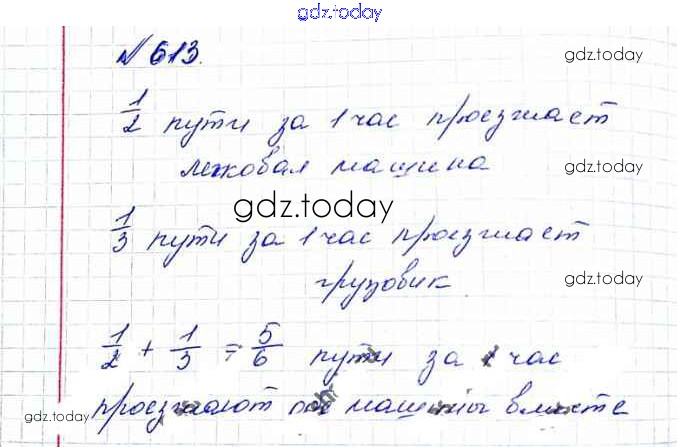 gdz.today
№ 613.
gdz.today
1/2 пути за 1 час проезжает
легковая машина
gdz.today
gdz.today
1/3 пути за 1 час проезжает
gdz.today
грузовик
1/2 + 1/3 = 5/6 пути за 1 час
gdz.today
проезжают машины вместе
gdz.today